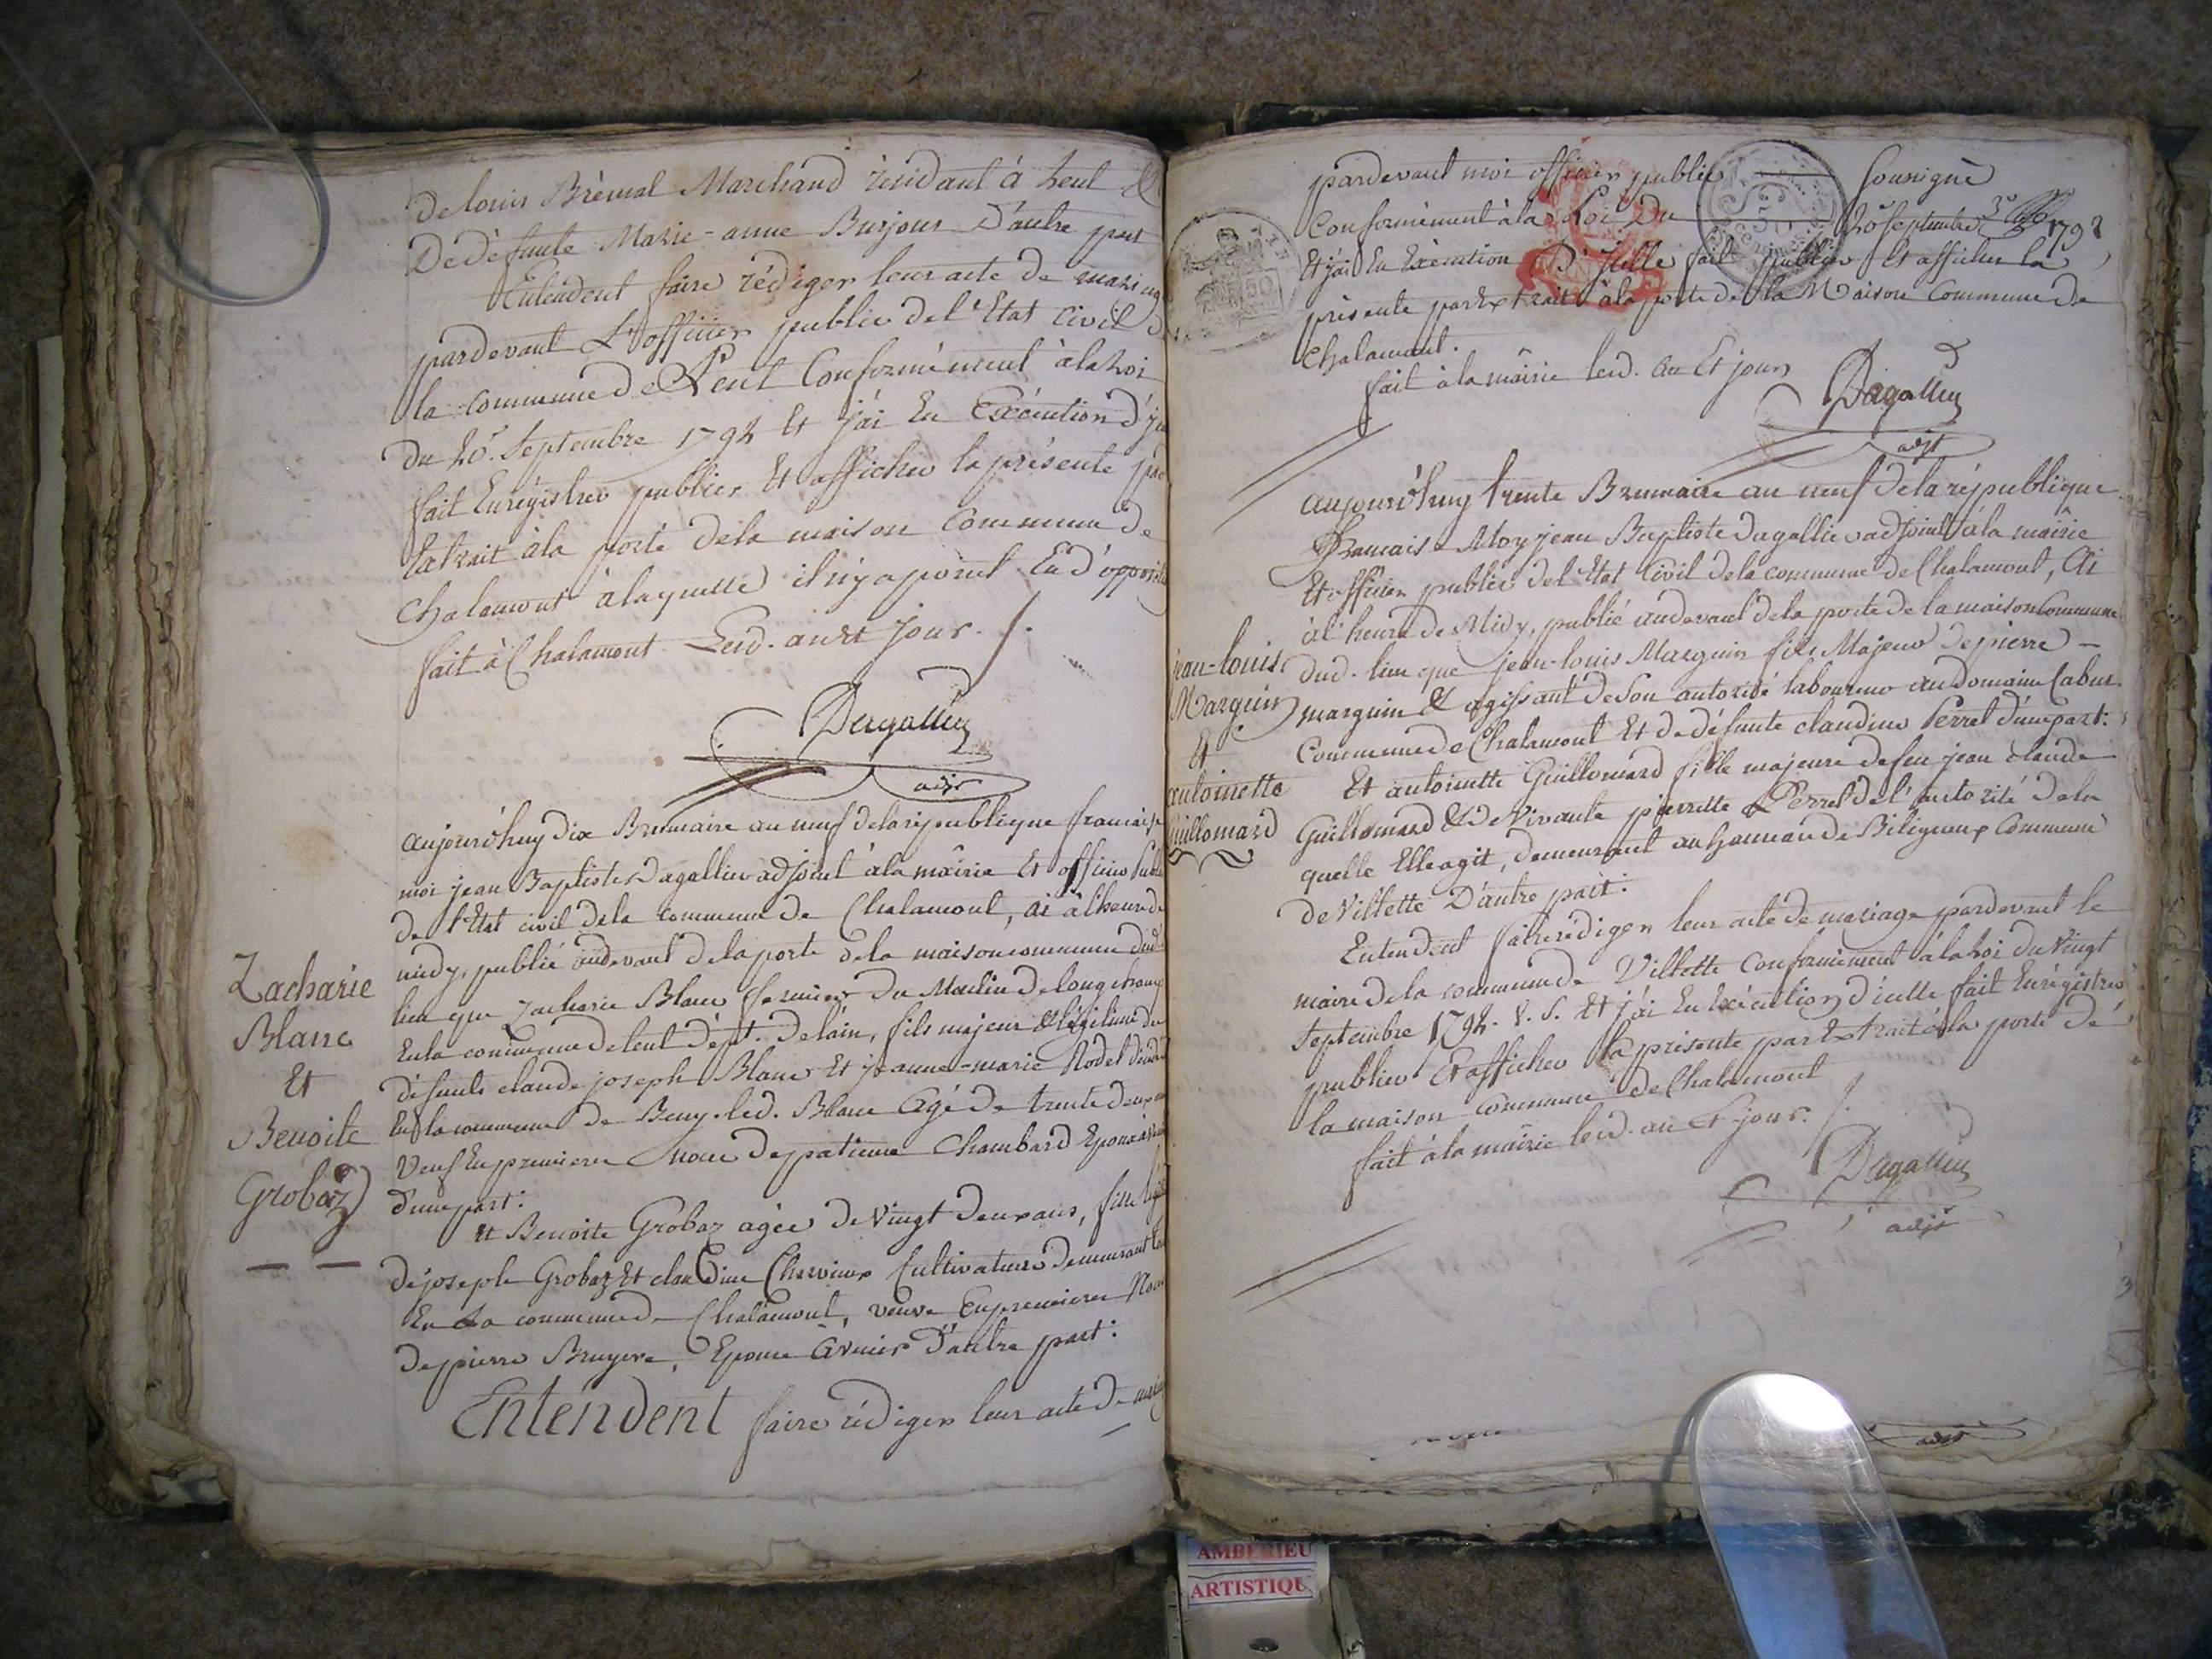 De louis Brémal Marchand résidant à Lent &
De défunte Marie-anne Burjous D'autre part
Entendent faire rédiger leur acte de mariag
pardevant L'officier public de l'Etat Civil d
la commune de Lent Conformément à la Loi
du 20e. Septembre 1792 Et j'ai En Exécution d'
fait Enrégistrer publier Et afficher la présente par
Extrait à la porte de la maison Commune de
Chalamont à laquelle il n'y a point Eu d'oppositi
fait à Chalamont Lesd. an Et jour.
Dagallier
adjt
aujourd'huy dix Brumaire an neuf de la république francaise
moi jean Baptiste Dagallier adjoint à la mairie Et officier Public
de l'Etat civil de la commune de Chalamont, ai à l'heure de
midy, publié audevant de la porte de la maison commune dud.
lieu que Zacharie Blanc fermier du Moulin de longchamp
En la commune de Lent dépt. de l'ain, fils majeur & légitime de
défunts claude joseph Blanc Et jeanne-marie Rodet
En la commune de Beny. led. Blanc Agé de trente deux ans
Veuf En premieres Noces de patience Chambard Epoux à venir
d'une part:
Zacharie
Blanc
Et
Benoite
Grobaz
Et Benoite Grobaz agée de Vingt deux ans, fille légit
de joseph Grobaz Et claudine Cherviaux Cultivateurs demeurant
En La commune de Chalamont, veuve En premieres Noces
de pierre Bruyere, Epouse à venir D'autre part:
Entendent faire rédiger leur acte de mariag
pardevant moi officier public Soussigné
Conformément à la Loi Du 20e Septembre 1792
Et j'ai En Exécution D'Icelle fait publier Et afficher la
présente par Extrait à la porte de la Maison Commune de
Chalamont.
fait à la mairie lesd. an Et jour
Dagallier
adjt
aujourd'huy trente Brumaire an neuf de la république
francaise Moy jean Baptiste Dagallier adjoint à la mairie
Et officier public de l'Etat Civil de la commune de Chalamont, Ai
à l'heure de Midy, publié audevant de la porte de la maison Commune
dud. lieu que jean-louis Marguin fils Majeur de pierre
marguin & agissant de Son autorité laboureur au domaine
Commune de Chalamont Et de défunte claudine Perret d'une part:
jean-louis
Marguin
Et
antoinette
Guillomard
Et antoinette Guillomard fille majeure de feu jean claude
Guillomard & de Vivante pierrette Perret de l'autorité de la
quelle Elle agit, demeurant au hameau de Biligneux Commune
de Villette D'autre part:
Entendent faire rédiger leur acte de mariage pardevant le
maire de la commune de Villette Conformément à la Loi du Vingt
Septembre 1792. V. S. Et j'ai En Exécution d'icelle fait Enrégistrer
publier Et afficher la présente par Extrait à la porte de
la maison commune de Chalamont
fait à la mairie lesd. an Et jour.
Dagallier
adjt
adjt
AMBERIEU
ARTISTIQU